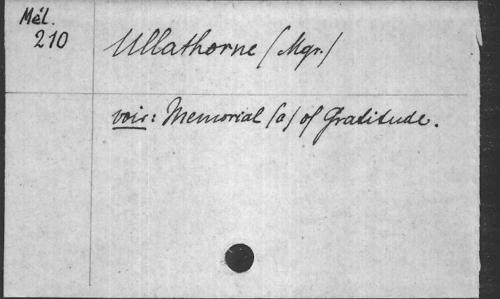 Mél.
210
Ullathorne (Mgr.)
voir: Memorial (a) of Gratitude.